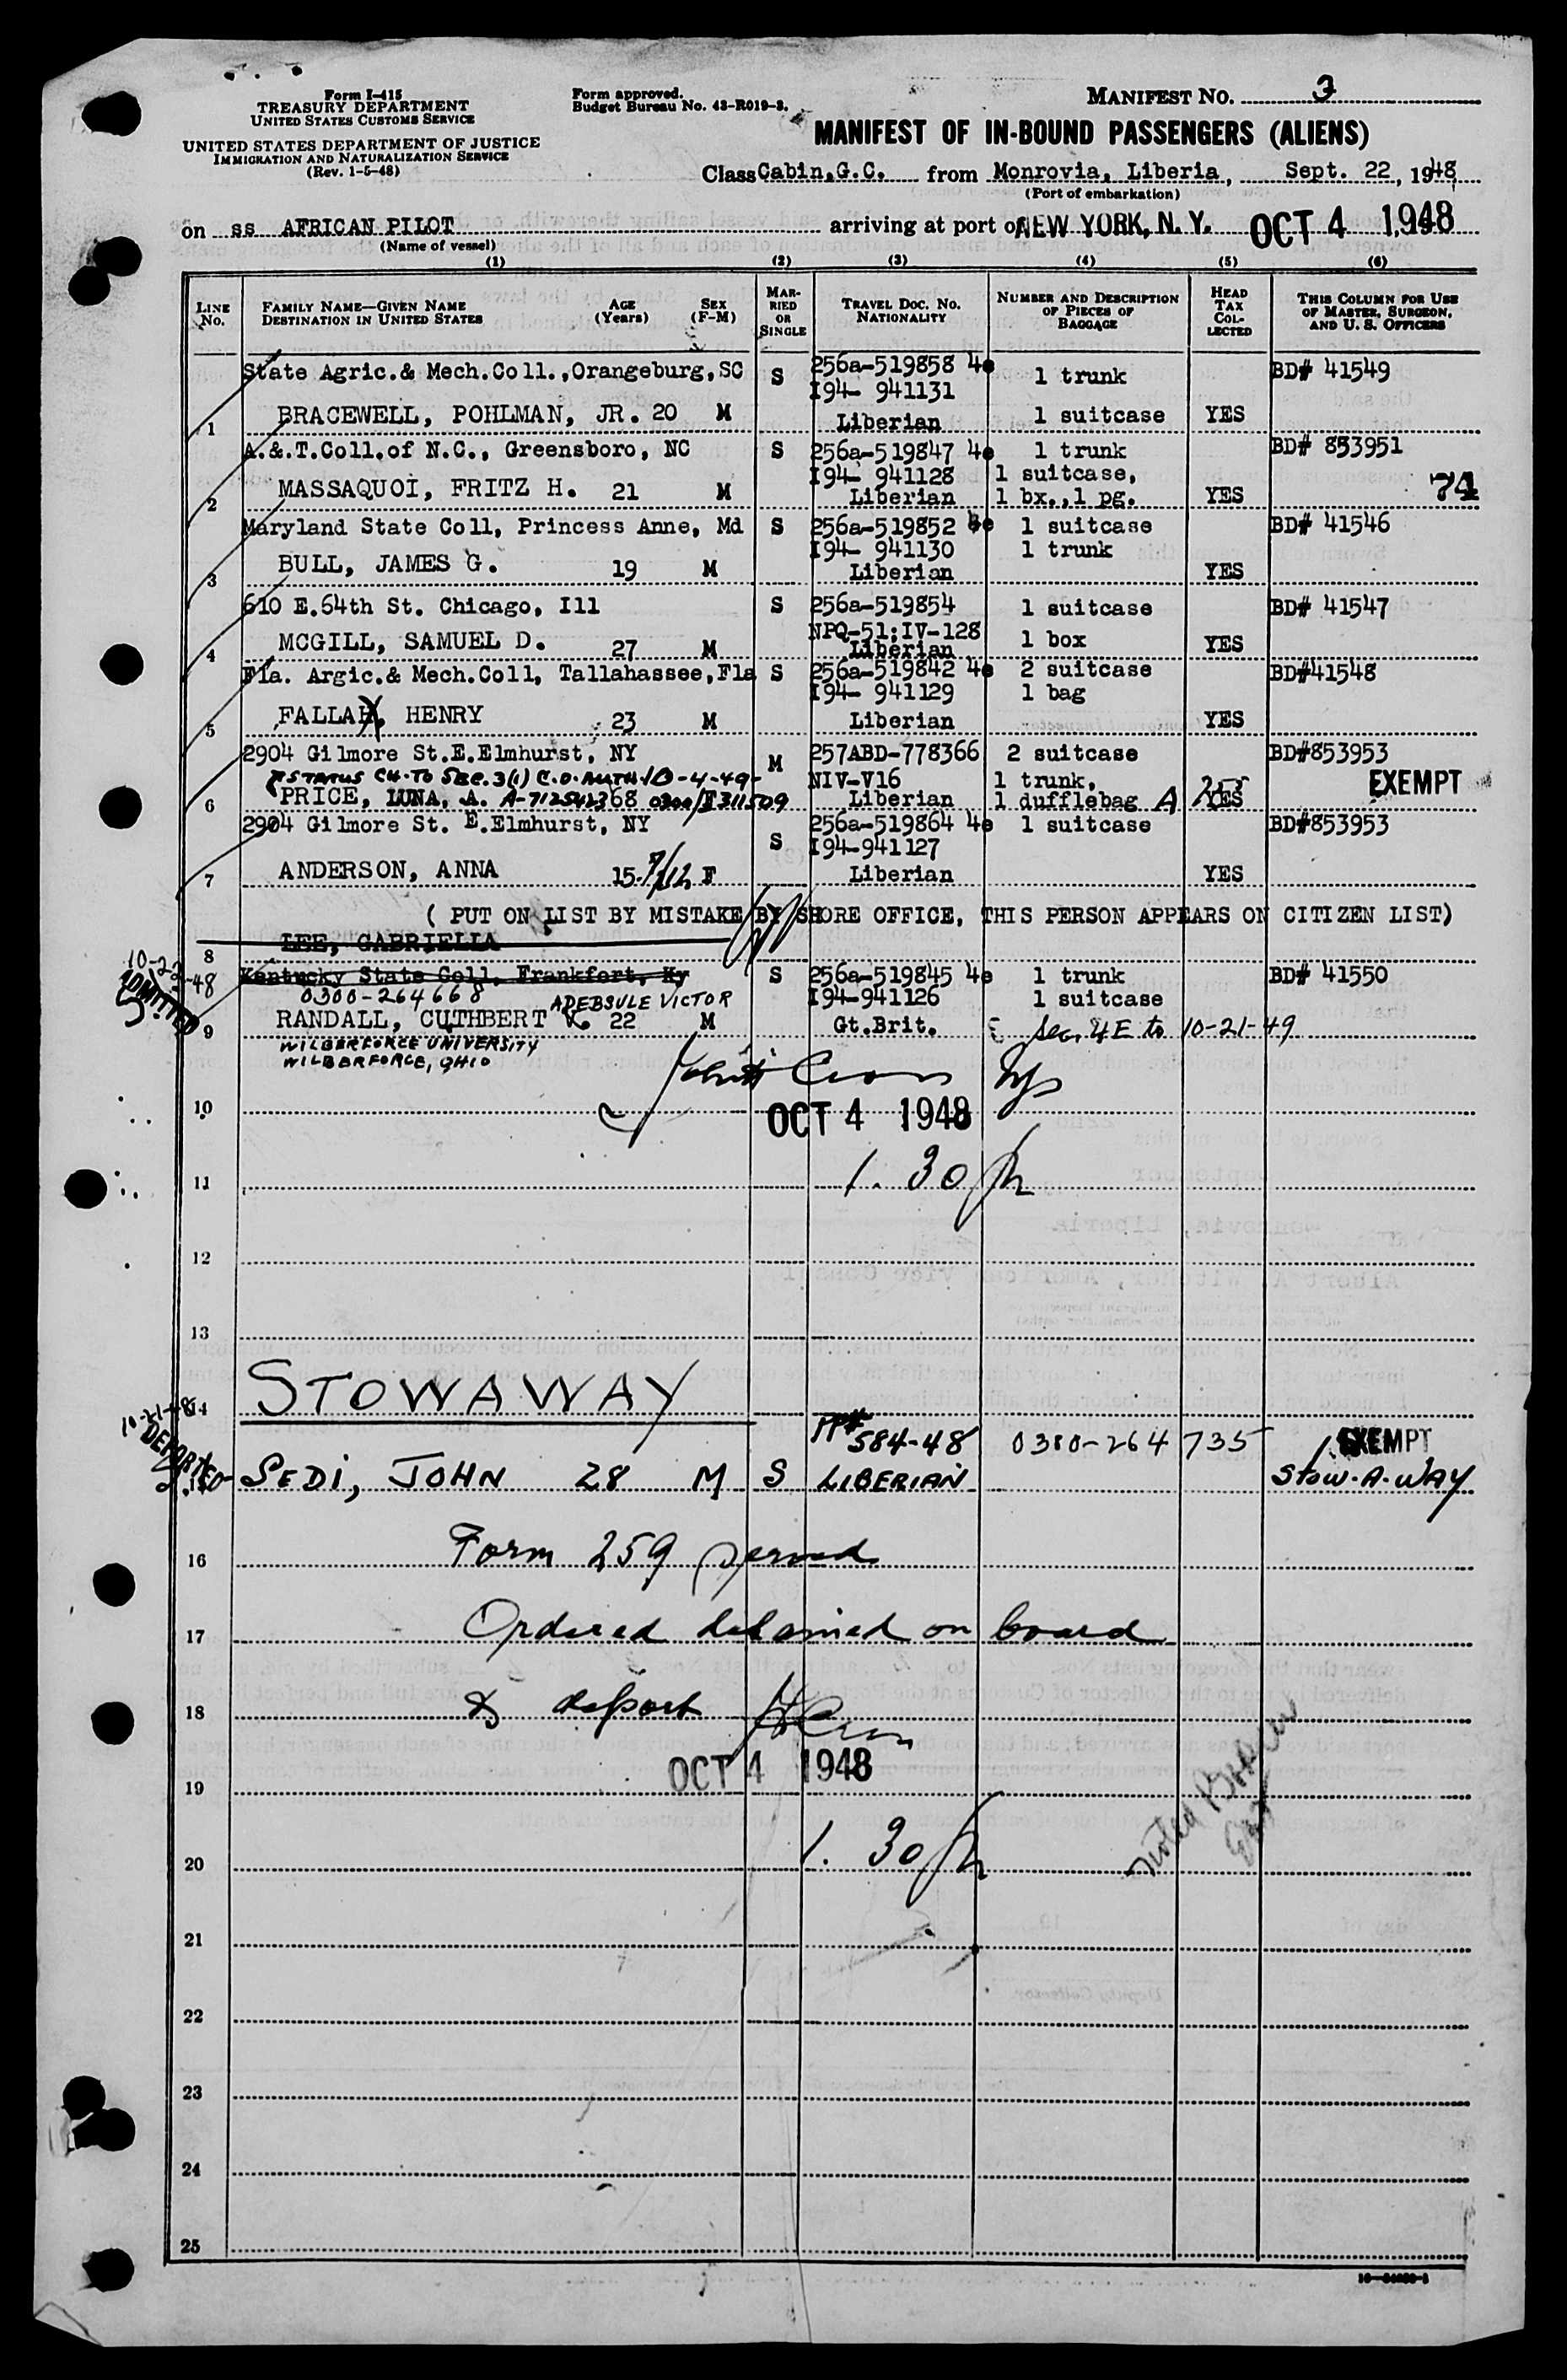 Form I-415
TREASURY DEPARTMENT
UNITED STATES CUSTOMS SERVICE
UNITED STATES DEPARTMENT OF JUSTICE
IMMIGRATION AND NATURALIZATION SERVICE
(Rev. 1-5-48)
Form approved.
Budget Bureau No. 43-R019-3.
MANIFEST NO. 3
MANIFEST OF IN-BOUND PASSENGERS (ALIENS)
Class Cabin, G.C. from Monrovia, Liberia, Sept. 22, 1948
(Port of embarkation)
on ss AFRICAN PILOT arriving at port of NEW YORK, N. Y. OCT 4 1948
(Name of vessel)
(1) (2) (3) (4) (5) (6)
LINE No. FAMILY NAME—GIVEN NAME DESTINATION IN UNITED STATES AGE (Years) SEX (F-M) MARRIED OR SINGLE TRAVEL DOC. NO. NATIONALITY NUMBER AND DESCRIPTION OF PIECES OF BAGGAGE HEAD TAX COLLECTED THIS COLUMN FOR USE OF MASTER, SURGEON, AND U. S. OFFICERS
State Agric.& Mech.Coll.,Orangeburg,SC S 256a-519858 4e 1 trunk BD# 41549
I94- 941131
1 BRACEWELL, POHLMAN, JR. 20 M Liberian 1 suitcase YES
A.&.T.Coll.of N.C., Greensboro, NC S 256a-519847 4e 1 trunk BD# 853951
I94- 941128 1 suitcase,
2 MASSAQUOI, FRITZ H. 21 M Liberian 1 bx.,1 pg. YES 74
Maryland State Coll, Princess Anne, Md S 256a-519852 4e 1 suitcase BD# 41546
I94- 941130 1 trunk
3 BULL, JAMES G. 19 M Liberian YES
610 E.64th St. Chicago, Ill S 256a-519854 1 suitcase BD# 41547
NPQ-51;IV-128
4 MCGILL, SAMUEL D. 27 M Liberian 1 box YES
Fla. Argic.& Mech.Coll, Tallahassee,Fla S 256a-519842 4e 2 suitcase BD#41548
I94- 941129 1 bag
5 FALLAH, HENRY 23 M Liberian YES
2904 Gilmore St.E.Elmhurst, NY M 257ABD-778366 2 suitcase BD#853953
STATUS CH. TO SEC. 3(1) C.O. AUTH 10-4-49- NIV-V16 1 trunk, EXEMPT
6 PRICE, LUNA, A. A-7125423 68 0300/I311509 Liberian 1 dufflebag A YES
2904 Gilmore St. E.Elmhurst, NY S 256a-519864 4e 1 suitcase BD#853953
I94-941127
7 ANDERSON, ANNA 15 7/12 F Liberian YES
( PUT ON LIST BY MISTAKE BY SHORE OFFICE, THIS PERSON APPEARS ON CITIZEN LIST)
8 LEE, GABRIELLA
10-22-48 ADMITTED
Kentucky State Coll, Frankfort, Ky S 256a-519845 4e 1 trunk BD# 41550
0300-264668 ADEBSULE VICTOR I94-941126 1 suitcase
9 RANDALL, CUTHBERT V. 22 M Gt.Brit. Sec. 4E to 10-21-49
WILBERFORCE UNIVERSITY
WILBERFORCE, OHIO
10 OCT 4 1948
11 1.30
12
13
14 STOWAWAY
10-21-48 DEPORTED
PP# 584-48 0300-264735 EXEMPT
SEDI, JOHN 28 M S LIBERIAN STOW-A-WAY
16 Form 259 served
17 Ordered detained on board
18 & deport
19 OCT 4 1948
20 1.30
21
22
23
24
25